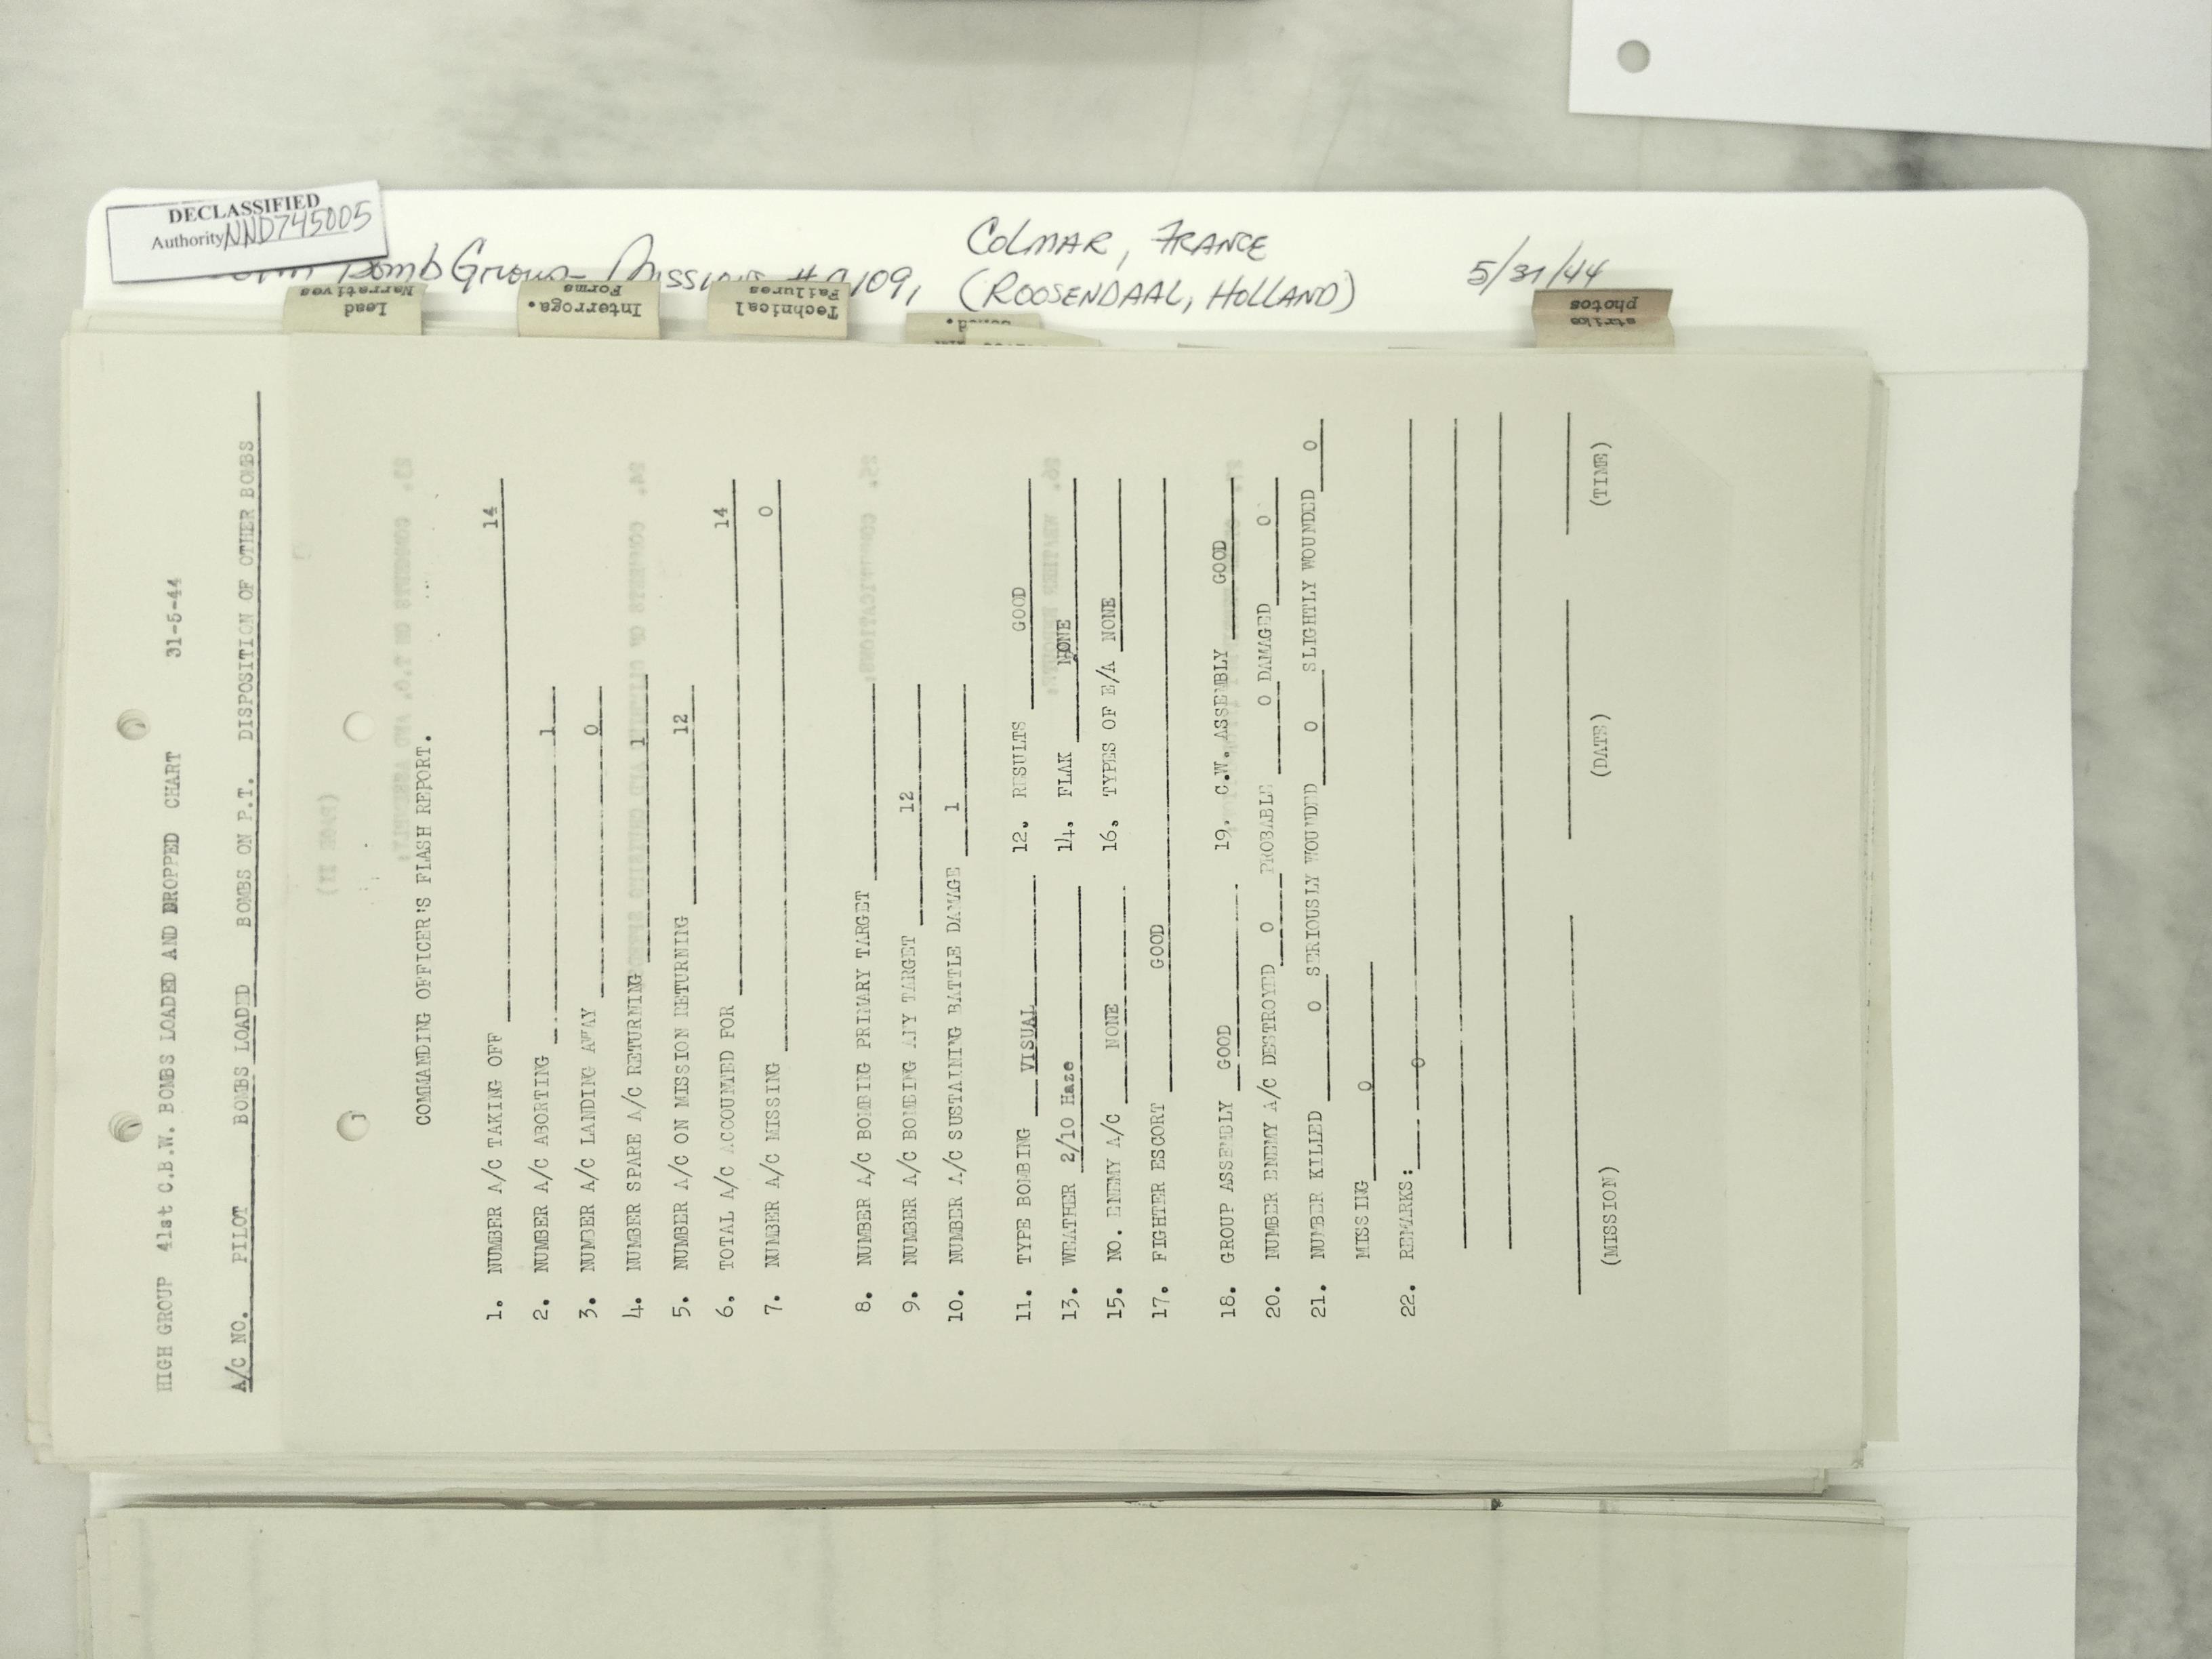 DECLASSIFIED
Authority NND745005
Bomb Group
COLMAR, FRANCE
(ROOSENDAAL, HOLLAND)
5/31/44
Lead
Narratives
Interroga.
Forms
Technical
Failures
strike
photos
HIGH GROUP 41st C.B.W. BOMBS LOADED AND DROPPED CHART 31-5-44
A/C NO. PILOT BOMBS LOADED BOMBS ON P.T. DISPOSITION OF OTHER BOMBS
COMMANDING OFFICER'S FLASH REPORT.
1. NUMBER A/C TAKING OFF 14
2. NUMBER A/C ABORTING 1
3. NUMBER A/C LANDING AWAY 0
4. NUMBER SPARE A/C RETURNING 1
5. NUMBER A/C ON MISSION RETURNING 12
6. TOTAL A/C ACCOUNTED FOR 14
7. NUMBER A/C MISSING 0
8. NUMBER A/C BOMBING PRIMARY TARGET
9. NUMBER A/C BOMBING ANY TARGET 12
10. NUMBER A/C SUSTAINING BATTLE DAMAGE 1
11. TYPE BOMBING VISUAL 12. RESULTS GOOD
13. WEATHER 2/10 Haze 14. FLAK NONE
15. NO. ENEMY A/C NONE 16. TYPES OF E/A NONE
17. FIGHTER ESCORT GOOD
18. GROUP ASSEMBLY GOOD 19. C.W. ASSEMBLY GOOD
20. NUMBER ENEMY A/C DESTROYED 0 PROBABLE 0 DAMAGED 0
21. NUMBER KILLED 0 SERIOUSLY WOUNDED 0 SLIGHTLY WOUNDED 0
MISSING 0
22. REMARKS: 0
(MISSION) (DATE) (TIME)